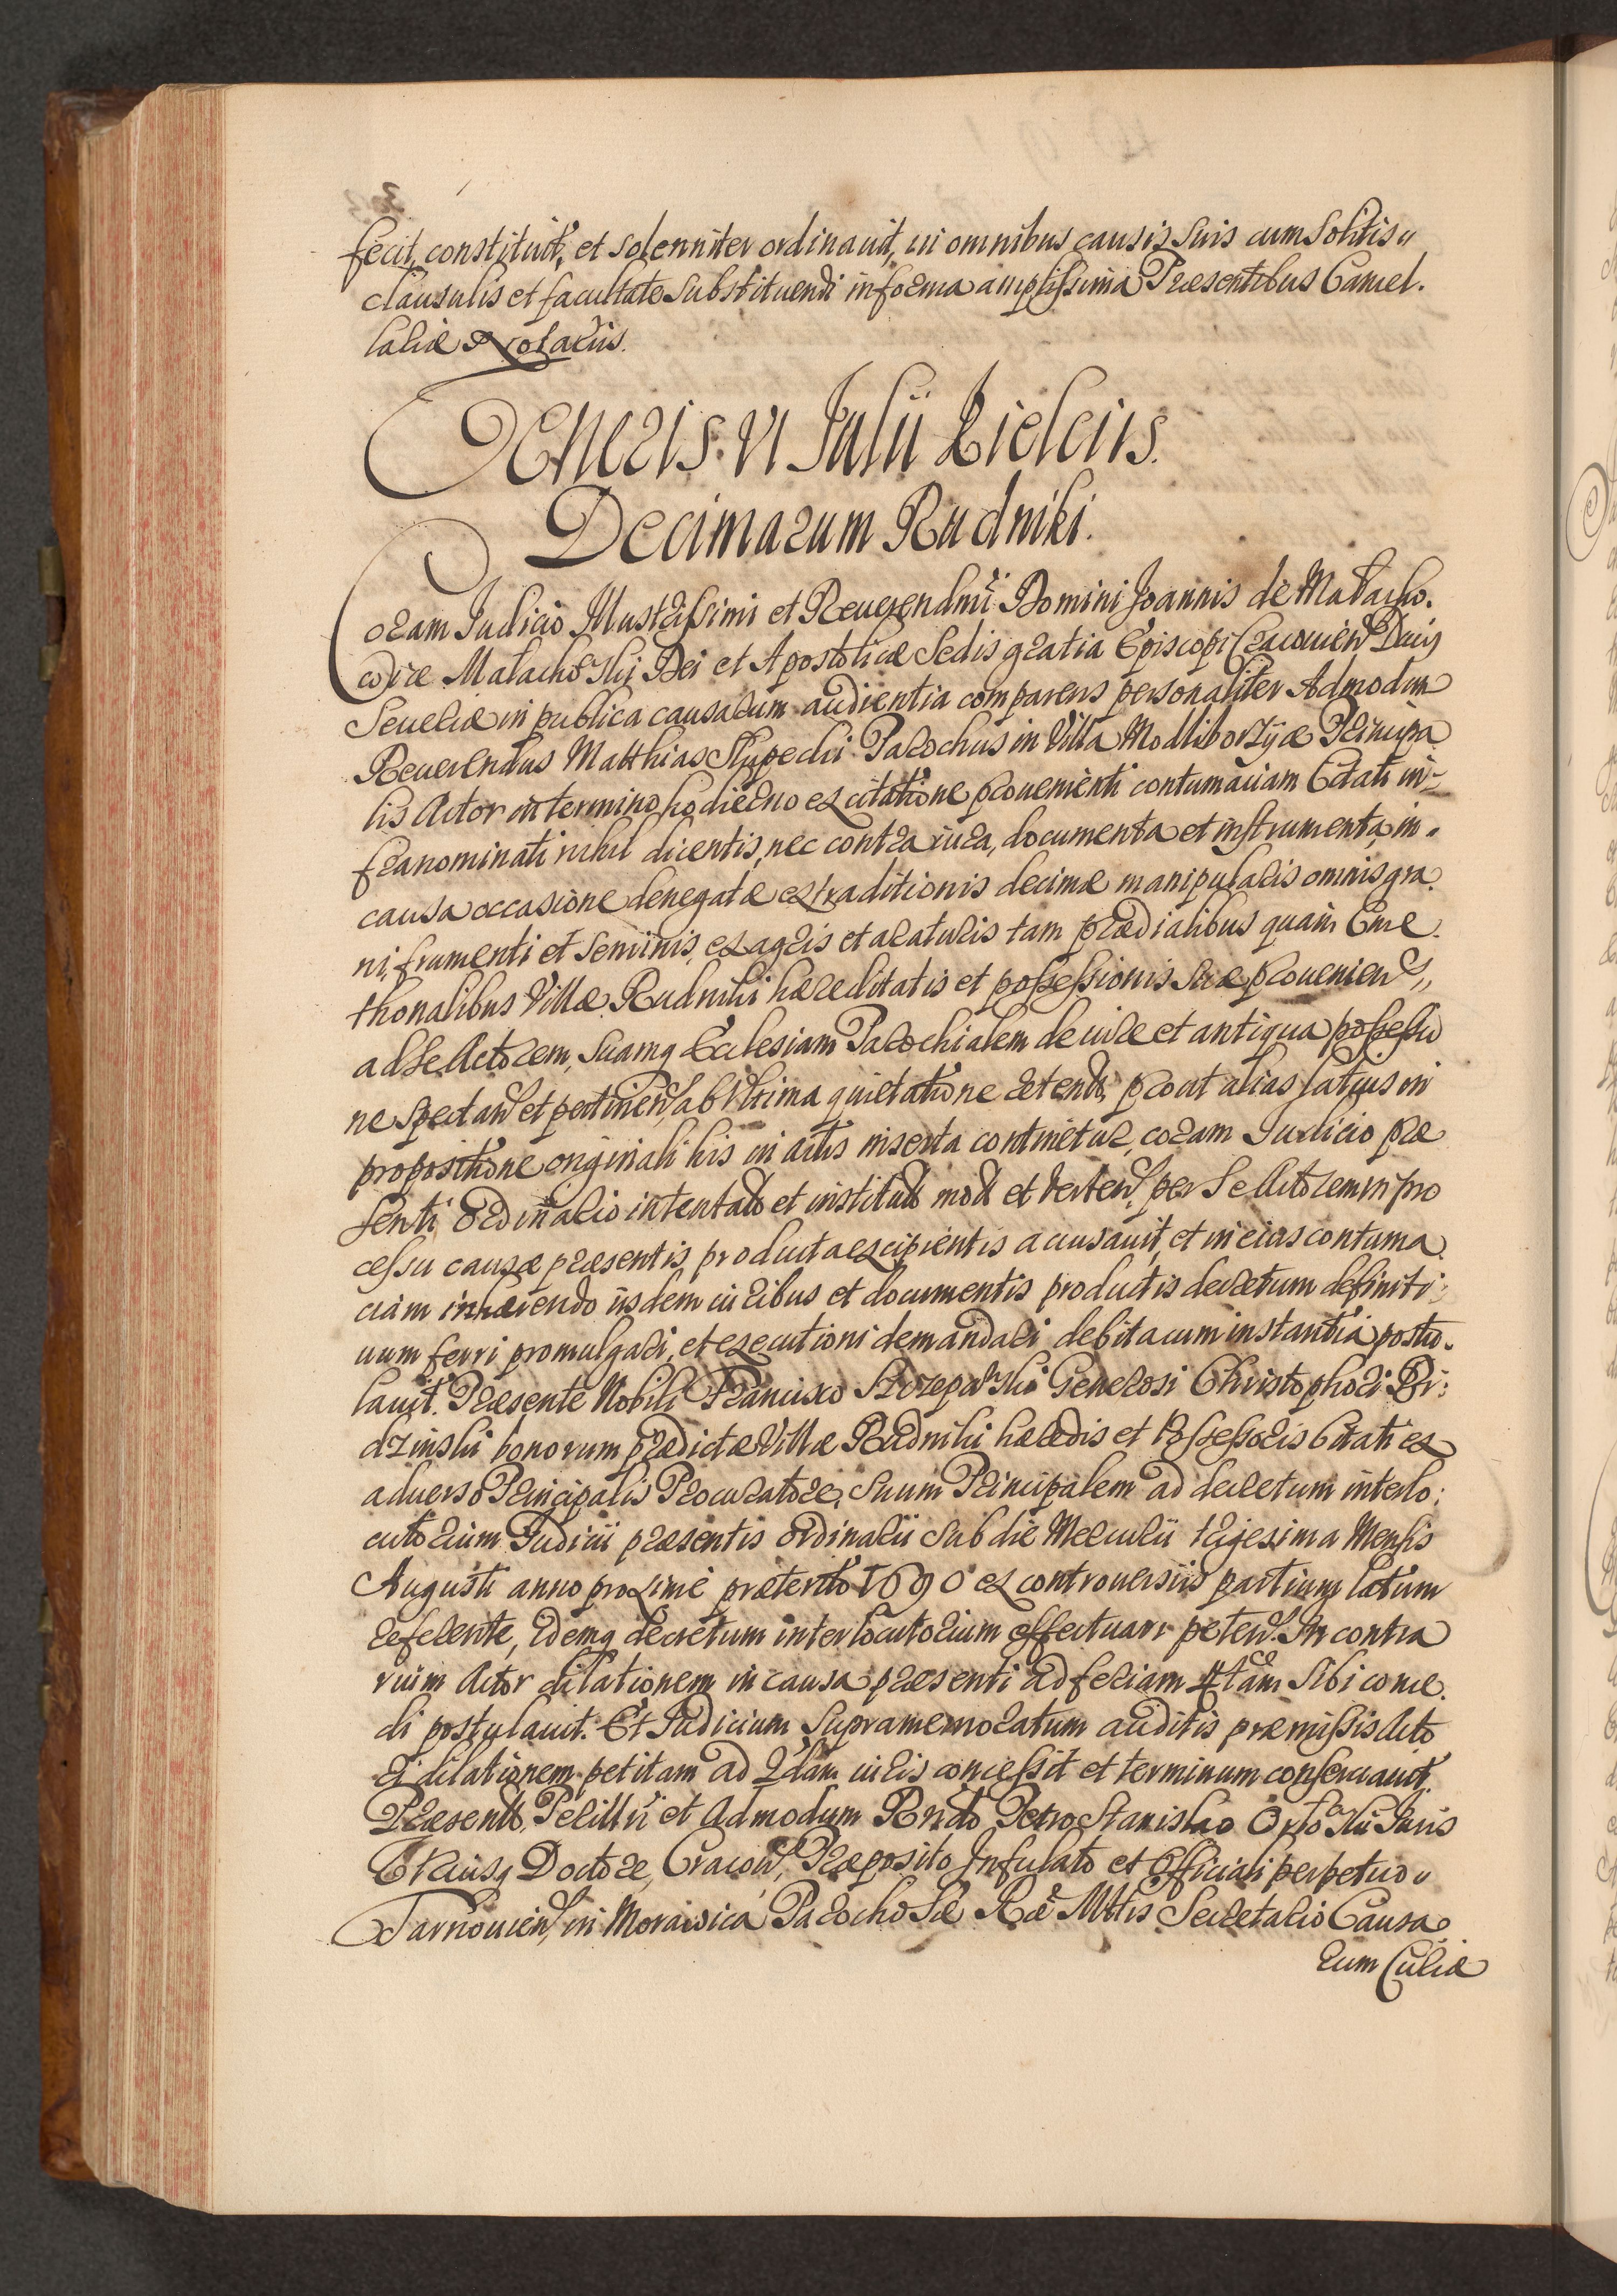 fecit, constituit, et solenniter ordinauit, in omnibus causis suis cum solitis
clausulis et facultate substituendi in forma amplissima Præsentibus Cancel.
lariæ Notariis.
Veneris. VI Julii Kielciis.
Decimarum Rudniki.
Coram Judicio Illustrissimi et Reuerendmi Domini Joannis de Malacho.
wice Malachowski Dei et Apostolicæ Sedis gratia Episcopi Cracouien Ducis
Seueriæ in publica causarum audientia comparens personaliter Admodum
Reuerendus Matthias Słupecki Parochus in Villa Modliborzyce Principa
lis Actor in termino hodierno ex citatione proueniènti contumaciam Citati in-
franominati nihil dicentis, nec contra iura, documenta et instrumenta, in
causa occasione denegatæ extraditionis decimæ manipularis omnis gra.
ni, frumenti et seminis, ex agris et araturis tam prædialibus quam Cme.
thonalibus Villæ Rudniki hæreditatis et possessionis suæ prouenien
ad se Actorem, suamq Ecclesiam Parochialem de iure et antiqua possessio
ne spectan et pertinen, ab vltima quietatione retentis, prout alias latius in
propositione originali his in actis inserta continetur, coram Judicio præ
senti ordinario intentato et instituto mota et verten, per se Actorem in pro
cessu causæ præsentis, producta excipientis accusauit, et in eius contuma.
ciam inhærendo iisdem iuribus et documentis productis decretum definiti:
uum ferri promulgari, et executioni demandari debita cum instantia postu.
lauit. Præsente Nobili Francisco Szczepański Generosi Christophori Bi:
dzinski bonorum prædictæ Villæ Rudniki hæredis et Possessoris Citati ex
aduerso Principalis Procuratore, suum Principalem ad decretum interlo:
cutorium Judicii præsentis ordinarii sub die Mercurii trigesima Mensis
Augusti anno proximè præterito 1690 ex controuersiis partium latum
referente, Idemq decretum interlocutorium effectuari peten. In contra
rium Actor dilationem in causa præsenti ad feriam 4tam sibi conce.
di postulauit. Et Judicium supramemoratum auditis præmissis Acto
ri dilationem petitam ad 2dam iuris concessit et terminum conseruauit.
Præsente, Perillri et Admodum Rndo Petro Stanislao Orłowski Juris
Vtriusq Doctore, Cracou, Præposito Infulato et Officiali perpetuo
Tarnouien, in Morawica Parocho Sæ Ræ Mttis Secretario Causa.
rum Curiæ